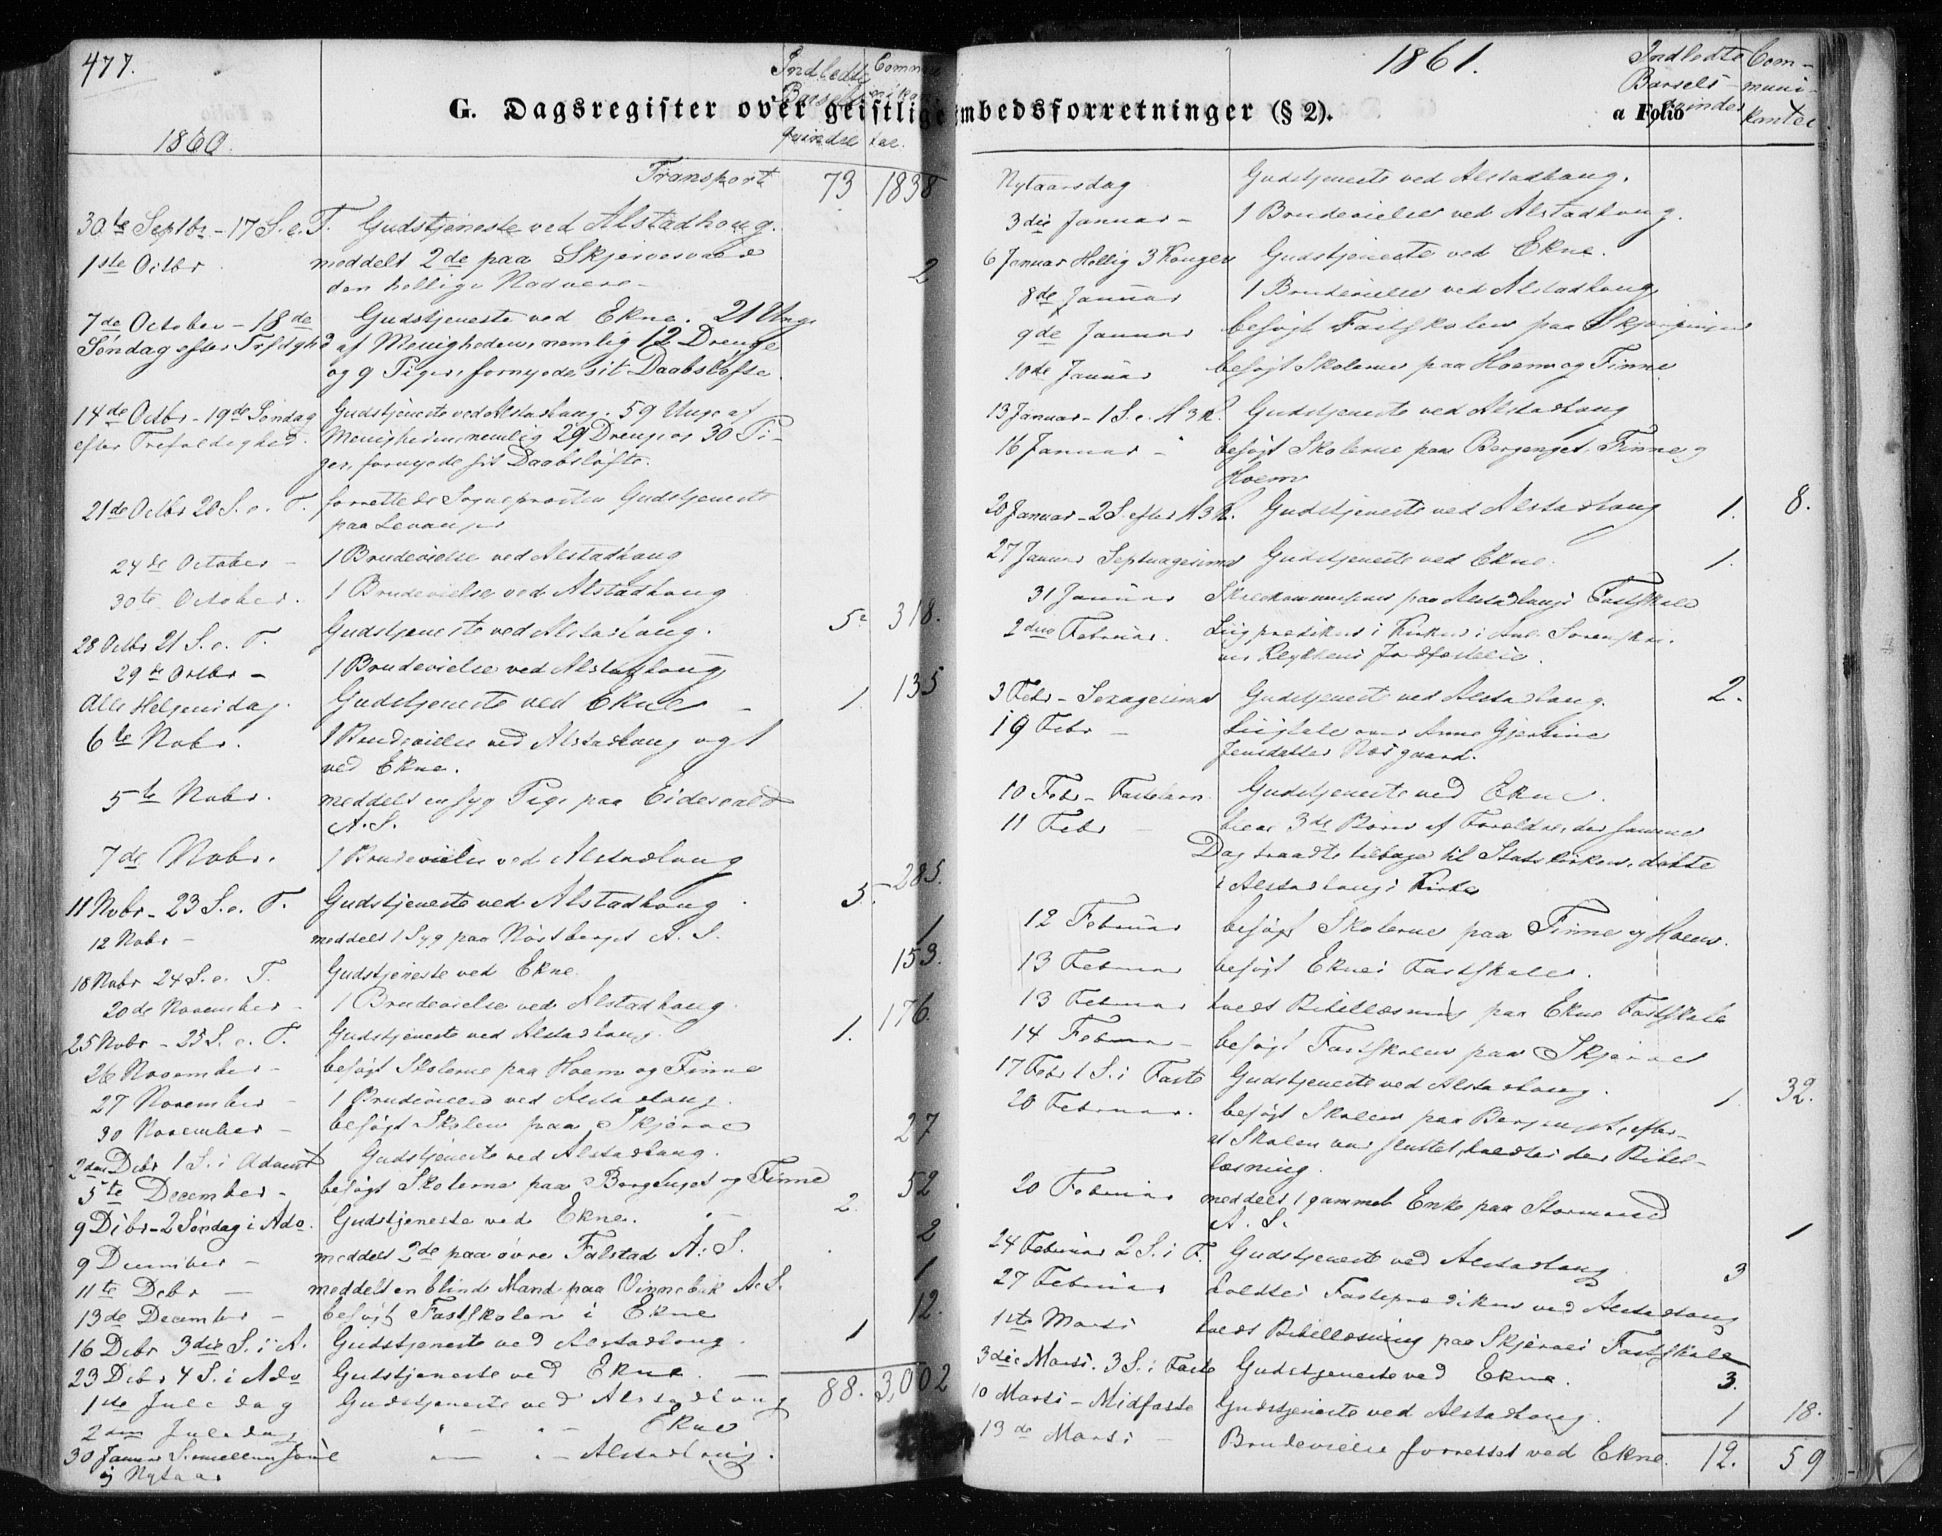 477.
Indledte Commu
Barsel- nikan
qvinder ter.
G. Dagsregister over geistlige
1860.
Transport 73 1838
30te Septbr - 17 S. e. T. Gudstjeneste ved Alstadhoug.
1ste Octbr meddelt 2de paa Skjervesvald 2
den hellige Nadvere -
7de October - 18de Gudstjeneste ved Ekne. 21 Unge
Søndag efter Trfdghd af Menigheden, nemlig 12 Drenge
og 9 Piger, fornyede sit Daabsløfte.
14de Octbr - 19de Søndag Gudstjeneste ved Alstadhoug. 59 Unge af
efter Trefoldighed. Menigheden, nemlig 29 Drenge og 30 Pi-
ger, fornyede sit Daabsløfte.
21de Octbr 20 S. e. T. forrettede Sognepresten Gudstjeneste
paa Levanger
24de October - 1 Brudevielse ved Alstadhoug
30te October. 1 Brudevielse ved Alstadhoug
28 Octbr 21 S. e. T. Gudstjeneste ved Alstadhoug. 5 318.
29de Octbr - 1 Brudevielse ved Alstadhoug
Alle Helgensdag. Gudstjeneste ved Ekne - 1. 135
6te Novbr. 1 Brudevielse ved Alstadhoug og 1
ved Ekne.
5te Novbr. meddelt en syg Pige paa Eidesvald
A. S.
7de Novbr. 1 Brudevielse ved Alstadhoug
11 Novbr - 23 S. e. T. Gudstjeneste ved Alstadhoug. 5. 285.
12 Novbr - meddelt 1 Syg paa Nossberget A. S. 1
18 Novbr 24 S. e. T. Gudstjeneste ved Ekne. 153.
20de November - 1 Brudevielse ved Alstadhoug.
25 Novbr - 25 S. e. T. Gudstjeneste ved Alstadhoug. 1. 176.
26 November - besøgt Skolerne paa Hoem og Finne
27 November - 1 Brudevielse ved Alstadhoug.
30 November - besøgt Skolen paa Skjerve
2den Debr 1 S. i Advent Gudstjeneste ved Alstadhoug. 27
5te December - besøgt Skolerne paa Bergenget og Finne
9 Debr - 2 Søndag i Adv. Gudstjeneste ved Ekne. - 2. 52
9 December - meddelt 2de paa øvre Falstad A. S. 2
11te Debr - meddelt en blind Mand paa Vinnebek A. S. 1
13de December - besøgt Fastskolen i Ekne
16 Debr 3die S. i A. Gudstjeneste ved Alstadhoug. 1 12.
23 Debr 4 S. i Adv Gudstjeneste ved Ekne - 88. 3,002
1ste Juledag Gudstjeneste ved Alstadhoug
2den Juledag " - " - Ekne
30 Januar S. mellem Juul " - " - Alstadhoug.
og Nytaar
1861.
Indledte Com-
Barsels- muni-
qvinder kanter
embedsforretninger (§ 2). a Folio
Nytaarsdag Gudstjeneste ved Alstadhoug.
3die Januar - 1 Brudevielse ved Alstadhoug.
6 Januar Hellig 3 Konger Gudstjeneste ved Ekne.
8de Januar 1 Brudevielse ved Alstadhoug
9de Januar besøgt Fastskolen paa
10de Januar besøgt Skolerne paa Hoem og Finne
13 Januar - 1 S. e. H 3 K. Gudstjeneste ved Alstadhoug
16 Januar - besøgt Skolerne paa Bergenget, Finne og
Hoem
20 Januar - 2 S. efter H 3 K. Gudstjeneste ved Alstadhoug 1. 8.
27 Januar Septuagesima Gudstjeneste ved Ekne. 1.
31 Januar Skolekommission paa Alstadhougs Fastskole
2den Februar. Liigprediken i Kirken i Anl.
Jordfæstelse.
3 Febr - Sexagesima Gudstjeneste ved Alstadhoug. 2.
19 Febr - Liigtale over Anne Gjertine
Jensdatter Norgaard.
10 Febr - Fastelavn. Gudstjeneste ved Ekne.
11 Febr - blev 3de Børn af Forældre, der samme
Dag traadte tilbage til Statskirken, døbte
i Alstadhougs Kirke
12 Februar besøgt Skolerne paa Finne og Hoem.
13 Februar besøgt Eknes Fastskole.
13 Februar holdt Bibellæsning paa Ekne Fastskole
14 Februar - besøgt Fastskolen paa Skjerve
17 Febr 1 S. i Faste Gudstjeneste ved Alstadhoug. 1 32.
20 Februar. besøgt Skolen paa Bergenget, efter-
at Skolen var sluttet, holdtes der Bibel-
læsning.
20 Februar meddelt 1 gammel Enke paa
A. S. 1
24 Februar 2 S. i F. Gudstjeneste ved Alstadhoug 3
27 Februar holdtes Fasteprediken ved Alstadhoug
1ste Marts holdt Bibellæsning paa Skjerves Fastskole
3die Marts. 3 S. i Faste Gudstjeneste ved Ekne. 3.
10 Marts - Midfaste Gudstjeneste ved Alstadhoug. 1 18.
13de Marts - Brudevielse forrettet ved Ekne. 12. 59